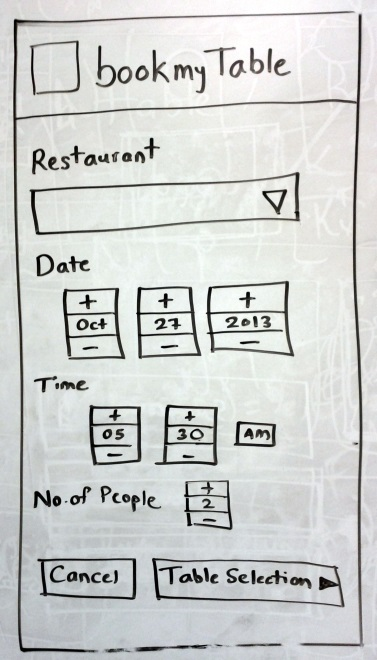 bookmyTable
Restaurant
Date
+ + +
Oct 27 2013
- - -
Time
+ +
05 30 AM
- -
No. of People
+
2
-
Cancel Table Selection